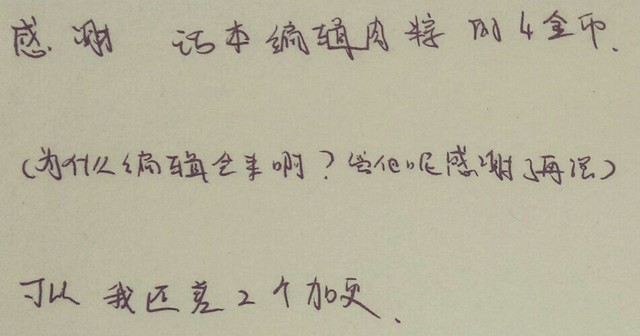 感谢 话本编辑肉粽的4金币.
(为什么编辑会来啊?管他呢感谢了再说)
可以 我还差2个加更.